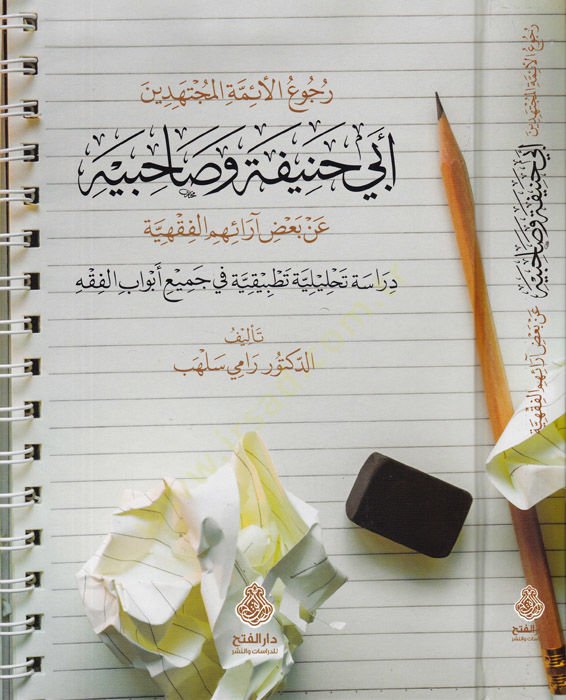 رُجُوعُ الأَئِمَّةِ المُجْتَهِدِينَ
أَبِي حَنِيفَةَ وَصَاحِبَيْهِ
عَنْ بَعْضِ آرَائِهِمِ الفِقْهِيَّةِ
دِرَاسَة تَحْلِيلِيَّة تَطْبِيقِيَّة فِي جَمِيعِ أَبْوَابِ الفِقْهِ
تَأْلِيفُ
الدّكتُور رَامِي سَلْهَب
دار الفتح
للدراسات والنشر
رُجُوعُ الأَئِمَّةِ المُجْتَهِدِينَ
أَبِي حَنِيفَةَ وَصَاحِبَيْهِ
عَنْ بَعْضِ آرَائِهِمِ الفِقْهِيَّةِ
دار الفتح
للدراسات والنشر